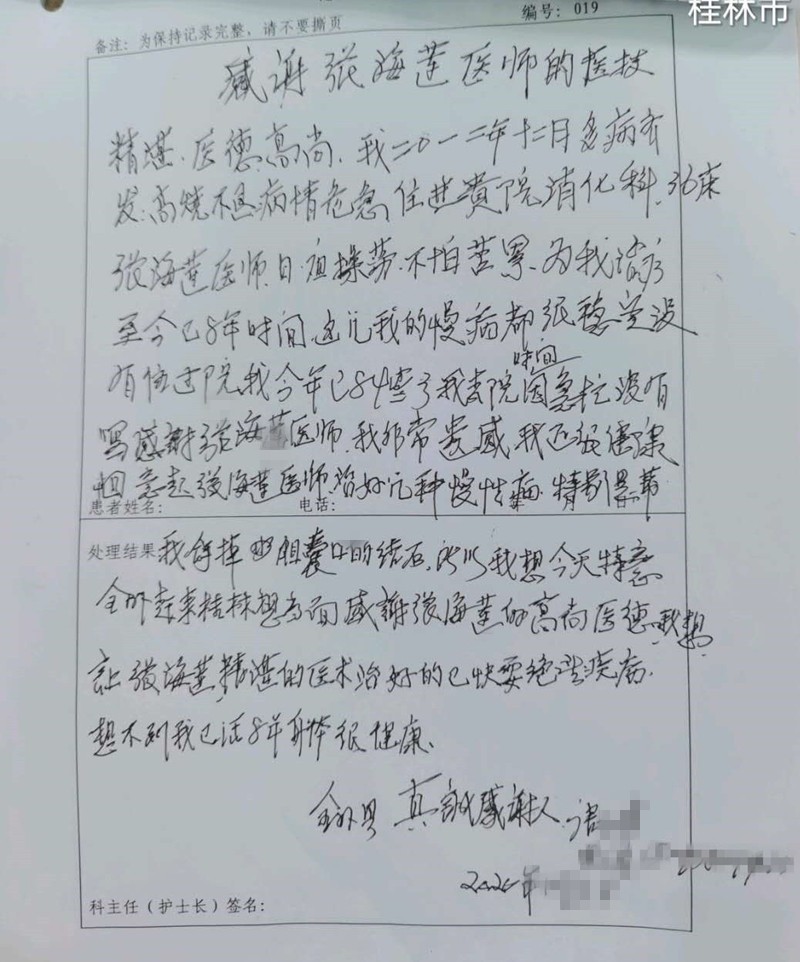 桂林市
编号: 019
备注: 为保持记录完整，请不要撕页
感谢张海莲医师的医技
精堪.医德高尚.我二〇一二年十二月多病齐
发.高烧不退病情危急住进贵院消化科.36床
张海莲医师.日夜操劳.不怕苦累.为我治疗
至今已8年时间.这几我的慢病都很稳定没
时间
有住过院.我今年已84岁了我出院因急忙没有
写感谢张海莲医师.我非常遗憾.我还很健康
回意起张海莲医师治好几种慢性病.特别是
患者姓名:
电话:
处理结果 我 掉 胆囊 的结石.所以我想今天特意
全州赶来桂林想当面感谢张海莲的高尚医德.我想
让张海莲精湛的医术治好的已快要绝 疾病.
想不到我已活8年身体很健康.
全州县 真诚感谢人
年
科主任（护士长）签名: